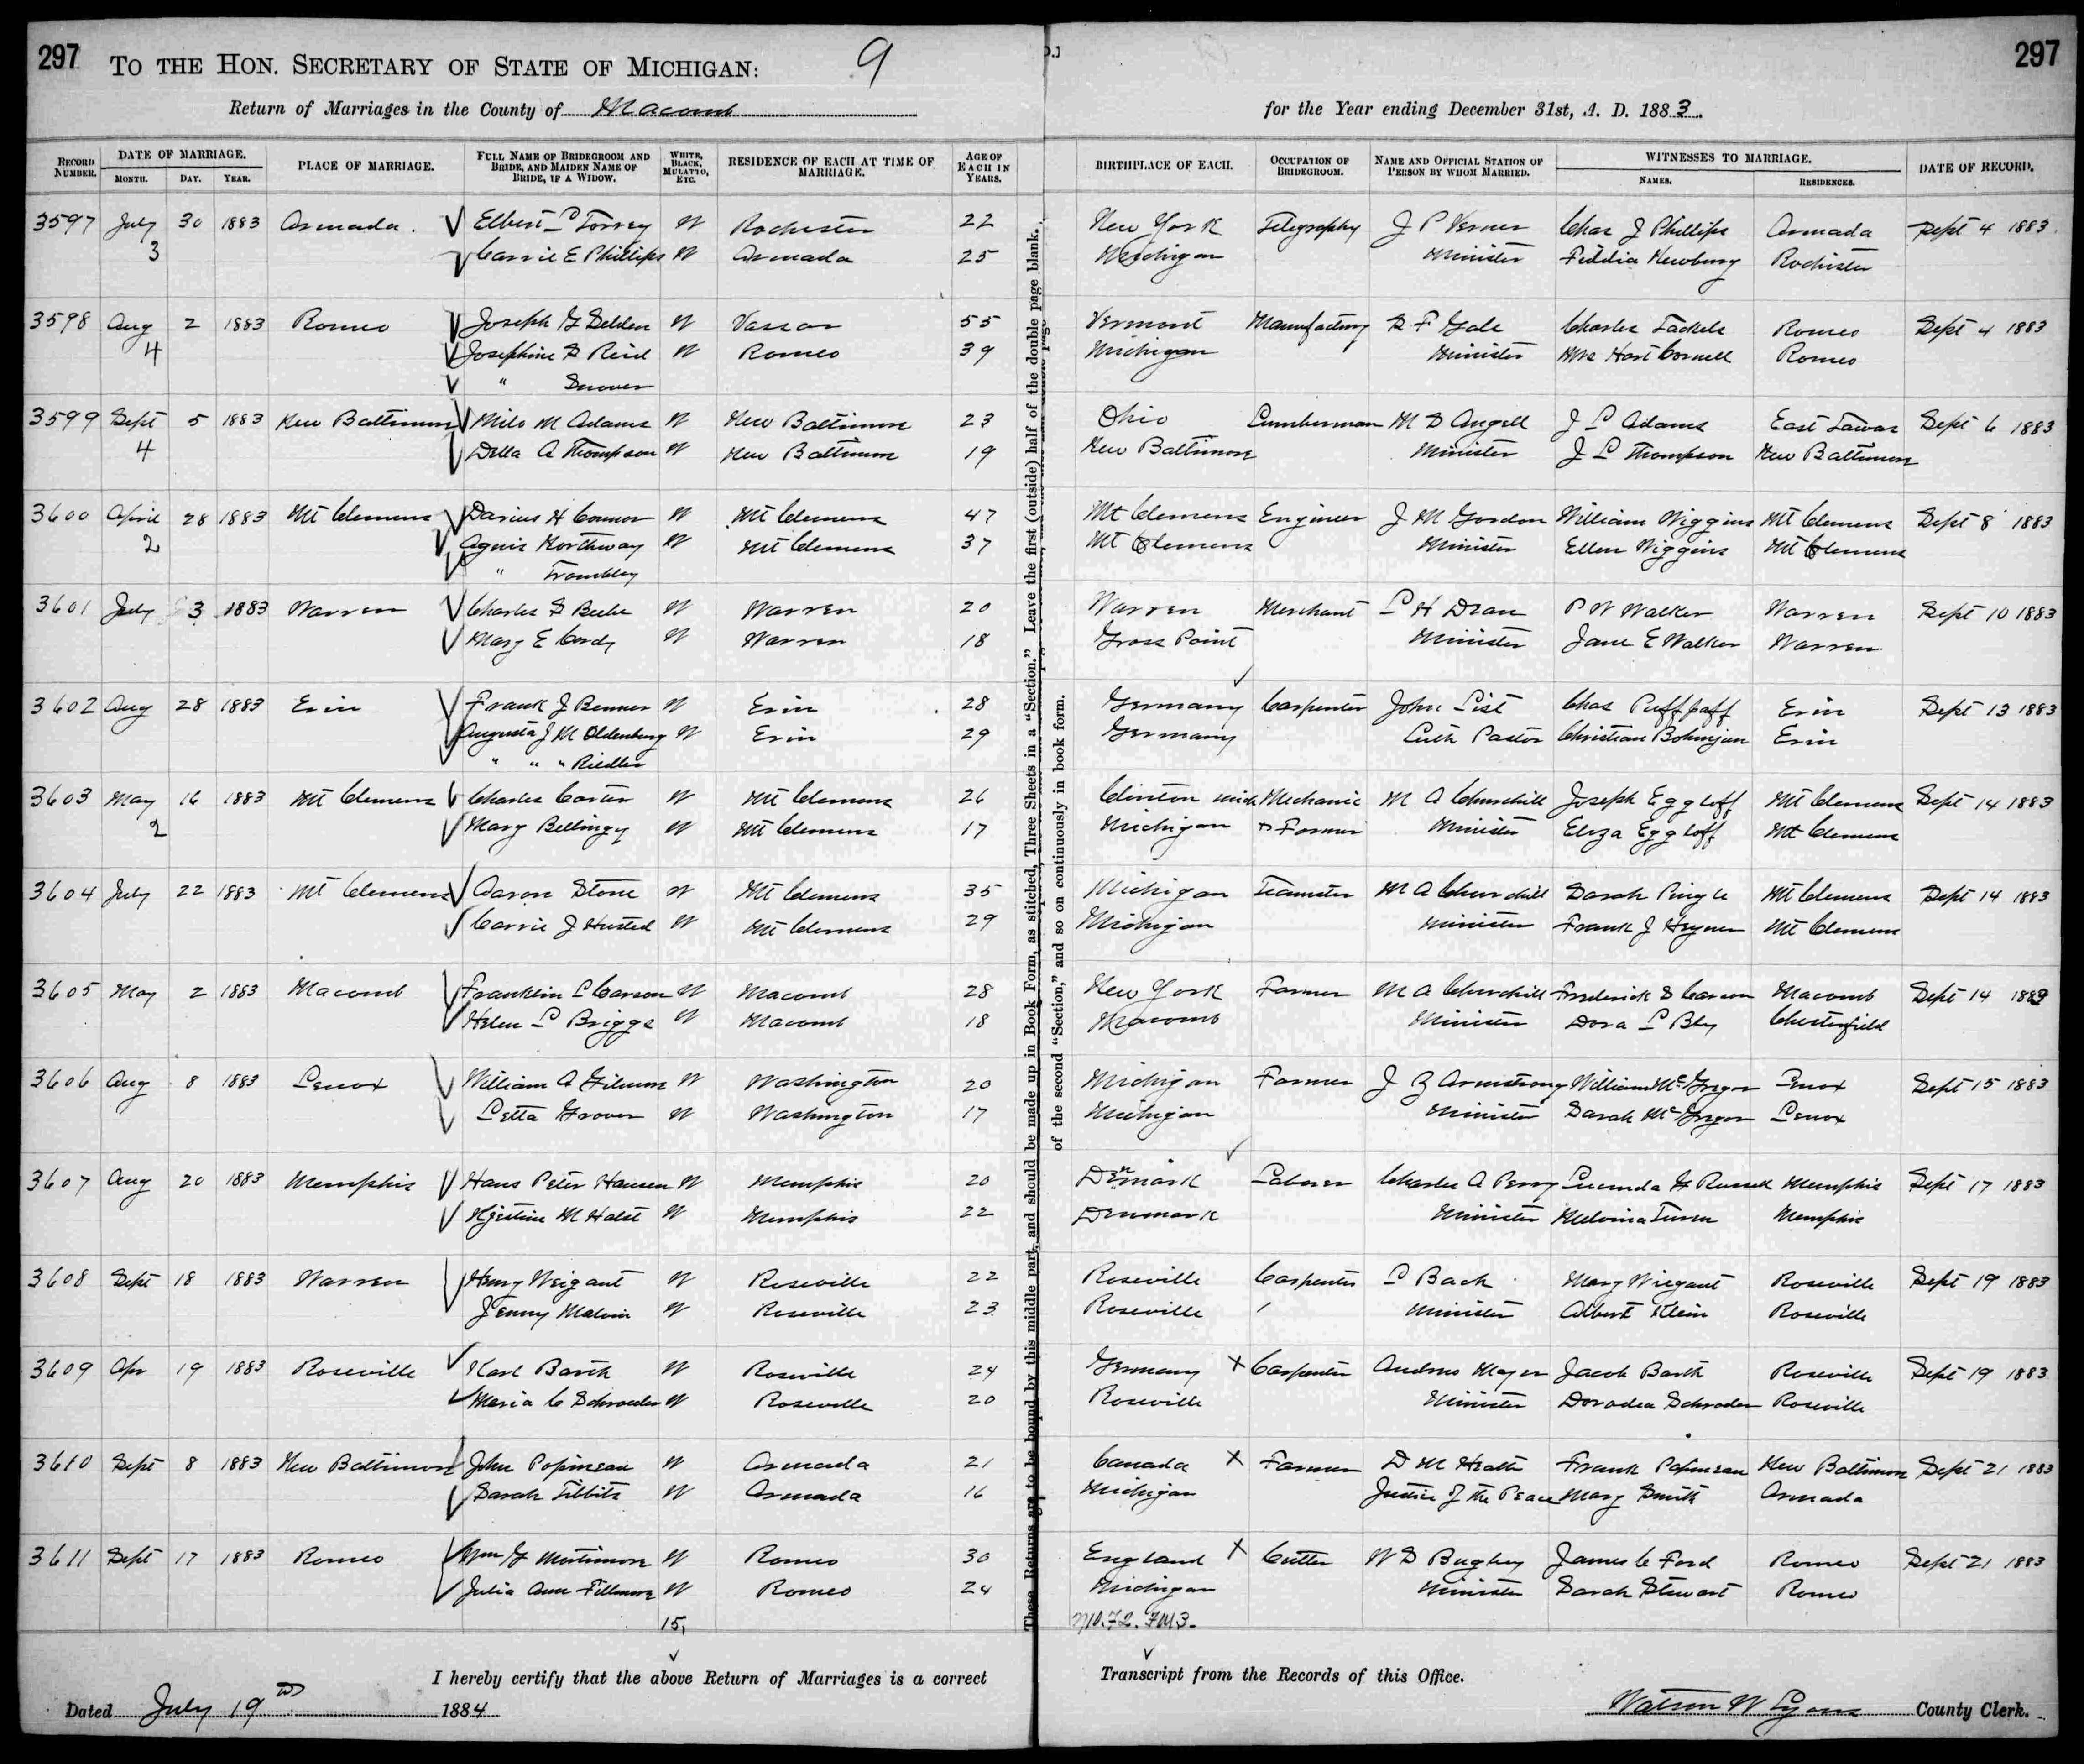 297 TO THE HON. SECRETARY OF STATE OF MICHIGAN: 9 297
Return of Marriages in the County of Macomb for the Year ending December 31st, A. D. 1883.
RECORD NUMBER. DATE OF MARRIAGE. MONTH. DAY. YEAR. PLACE OF MARRIAGE. FULL NAME OF BRIDEGROOM AND BRIDE, AND MAIDEN NAME OF BRIDE, IF A WIDOW. WHITE, BLACK, MULATTO, ETC. RESIDENCE OF EACH AT TIME OF MARRIAGE. AGE OF EACH IN YEARS. BIRTHPLACE OF EACH. OCCUPATION OF BRIDEGROOM. NAME AND OFFICIAL STATION OF PERSON BY WHOM MARRIED. WITNESSES TO MARRIAGE. NAMES. RESIDENCES. DATE OF RECORD.
3597 July 30 1883 Armada. Elbert L Torrey W Rochester 22 New York Telegraphy J P Verner Chas J Phillips Armada Sept 4 1883
3 Carrie E Phillips W Armada 25 Michigan Minister Newberry Rochester
3598 Aug 2 1883 Romeo Joseph G Selden W Vassar 55 Vermont Manufacturing S F Gale Charles Tackels Romeo Sept 4 1883
4 Josephine S Reid W Romeo 39 Michigan Minister Mrs Hart Cornell Romeo
" Snover
3599 Sept 5 1883 New Baltimore Milo M Adams W New Baltimore 23 Ohio Lumberman M D Angell J L Adams East Tawas Sept 6 1883
4 Della A Thompson W New Baltimore 19 New Baltimore Minister J L Thompson New Baltimore
3600 April 28 1883 Mt Clemens Darius H Connor W Mt Clemens 47 Mt Clemens Engineer J M Gordon William Wiggins Mt Clemens Sept 8 1883
2 Agnis Northway W Mt Clemens 37 Mt Clemens Minister Ellen Wiggins Mt Clemens
" Trombley
3601 July 3 1883 Warren Charles S Beebe W Warren 20 Warren Merchant L H Dean P W Walker Warren Sept 10 1883
Mary E Cordy W Warren 18 Gross Point Minister Jane E Walker Warren
3602 Aug 28 1883 Erin Frank J Benner W Erin 28 Germany Carpenter John List Chas Puffpaff Erin Sept 13 1883
Augusta J M Oldenburg W Erin 29 Germany Luth Pastor Christian Erin
" " " Riedler
3603 May 16 1883 Mt Clemens Charles Carter W Mt Clemens 26 Clinton Mich Mechanic M A Churchill Joseph Eggloff Mt Clemens Sept 14 1883
2 Mary Bellingy W Mt Clemens 17 Michigan & Farmer Minister Eliza Eggloff Mt Clemens
3604 July 22 1883 Mt Clemens Aaron Stone W Mt Clemens 35 Michigan Teamster M A Churchill Sarah Pingle Mt Clemens Sept 14 1883
Carrie J Husted W Mt Clemens 29 Michigan Minister Frank J Mt Clemens
3605 May 2 1883 Macomb Franklin L Carson W Macomb 28 New York Farmer M A Churchill Frederick S Carson Macomb Sept 14 1883
Helen L Briggs W Macomb 18 Macomb Minister Dora L Bly Chesterfield
3606 Aug 8 1883 Lenox William A Gilmore W Washington 20 Michigan Farmer J Z Armstrong William McGregor Lenox Sept 15 1883
Letta Grover W Washington 17 Michigan Minister Sarah McGregor Lenox
3607 Aug 20 1883 Memphis Hans Peter Hansen W Memphis 20 Denmark Laborer Charles A Perry Lucinda H Russell Memphis Sept 17 1883
Kjestine M Halst W Memphis 22 Denmark Minister Melvina Memphis
3608 Sept 18 1883 Warren Henry Weigant W Roseville 22 Roseville Carpenter L Bach Mary Wiegant Roseville Sept 19 1883
Jenny Malvin W Roseville 23 Roseville Minister Albert Klein Roseville
3609 Apr 19 1883 Roseville Karl Barth W Roseville 24 Germany X Carpenter Andreas Mayer Jacob Barth Roseville Sept 19 1883
Maria C Schroeder W Roseville 20 Roseville Minister Doradea Schroder Roseville
3610 Sept 8 1883 New Baltimore John Popineau W Armada 21 Canada X Farmer D M Heath Frank Popineau New Baltimore Sept 21 1883
Sarah Tibbits W Armada 16 Michigan Justice of the Peace Mary Smith Armada
3611 Sept 17 1883 Romeo Wm G Mortimore W Romeo 30 England X Cutter W S Bughey James C Ford Romeo Sept 21 1883
Julia Ann Fillmore W Romeo 24 Michigan Minister Sarah Stewart Romeo
15,
I hereby certify that the above Return of Marriages is a correct Transcript from the Records of this Office.
Dated July 19 1884 Watson W Lyons County Clerk.
These Returns are to be bound by this middle part, and should be made up in Book Form, as stitched, Three Sheets in a "Section." Leave the first (outside) half of the double page blank.
of the second "Section," and so on continuously in book form.